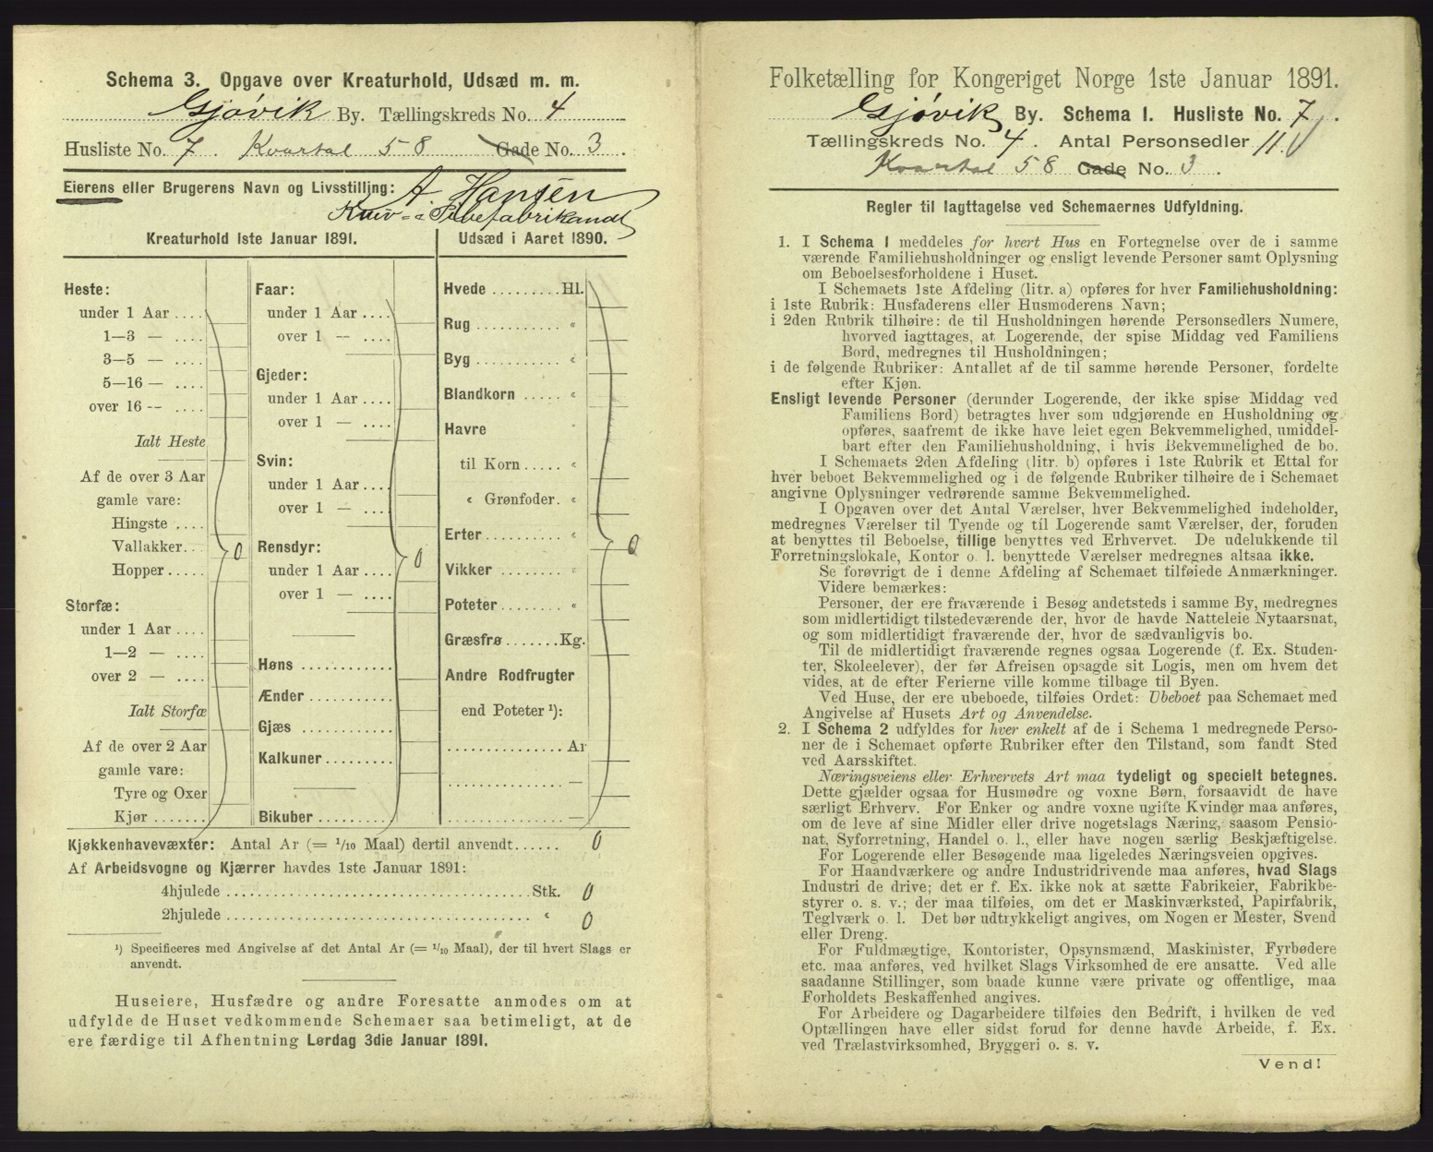 Schema 3. Opgave over Kreaturhold, Udsæd m. m.
Gjøvik By. Tællingskreds No. 4
Husliste No. 7. Kvartal 58 Gade No. 3.
Eierens eller Brugerens Navn og Livsstilling: A. Hansen
Kniv- Fabrikant
Kreaturhold 1ste Januar 1891.
Heste:
under 1 Aar ....
1—3 — ....
3—5 — ....
5—16 — ....
over 16 — ....
Ialt Heste
Af de over 3 Aar
gamle vare:
Hingste ....
Vallakker...
Hopper.....
0
Storfæ:
under 1 Aar ....
1—2 — ....
over 2 — ....
Ialt Storfæ
Af de over 2 Aar
gamle vare:
Tyre og Oxer
Kjør .......
Faar:
under 1 Aar ....
over 1 — ....
Gjeder:
under 1 Aar ....
over 1 — ....
Svin:
under 1 Aar ....
over 1 — ....
Rensdyr:
under 1 Aar ....
over 1 — ....
0
Høns ...........
Ænder ..........
Gjæs ...........
Kalkuner.........
Bikuber .........
Udsæd i Aaret 1890.
Hvede .........Hl.
Rug ........... «
Byg ........... «
Blandkorn ..... «
Havre
til Korn ..... «
« Grønfoder. «
Erter .......... «
Vikker ......... «
Poteter ........ «
Græsfrø .......Kg.
Andre Rodfrugter
end Poteter ¹):
............... Ar
............... —
............... —
0
Kjøkkenhavevæxter: Antal Ar (= 1/10 Maal) dertil anvendt...... 0
Af Arbeidsvogne og Kjærrer havdes 1ste Januar 1891:
4hjulede .......................................Stk. 0
2hjulede ....................................... « 0
¹) Specificeres med Angivelse af det Antal Ar (= 1/10 Maal), der til hvert Slags er
anvendt.
Huseiere, Husfædre og andre Foresatte anmodes om at
udfylde de Huset vedkommende Schemaer saa betimeligt, at de
ere færdige til Afhentning Lørdag 3die Januar 1891.
Folketælling for Kongeriget Norge 1ste Januar 1891.
Gjøvik By. Schema 1. Husliste No. 7.
Tællingskreds No. 4. Antal Personsedler 11.
Kvartal 58 Gade No. 3.
Regler til Iagttagelse ved Schemaernes Udfyldning.
1. I Schema 1 meddeles for hvert Hus en Fortegnelse over de i samme
værende Familiehusholdninger og ensligt levende Personer samt Oplysning
om Beboelsesforholdene i Huset.
I Schemaets 1ste Afdeling (litr. a) opføres for hver Familiehusholdning:
i 1ste Rubrik: Husfaderens eller Husmoderens Navn;
i 2den Rubrik tilhøire: de til Husholdningen hørende Personsedlers Numere,
hvorved iagttages, at Logerende, der spise Middag ved Familiens
Bord, medregnes til Husholdningen;
i de følgende Rubriker: Antallet af de til samme hørende Personer, fordelte
efter Kjøn.
Ensligt levende Personer (derunder Logerende, der ikke spise Middag ved
Familiens Bord) betragtes hver som udgjørende en Husholdning og
opføres, saafremt de ikke have leiet egen Bekvemmelighed, umiddel-
bart efter den Familiehusholdning, i hvis Bekvemmelighed de bo.
I Schemaets 2den Afdeling (litr. b) opføres i 1ste Rubrik et Ettal for
hver beboet Bekvemmelighed og i de følgende Rubriker tilhøire de i Schemaet
angivne Oplysninger vedrørende samme Bekvemmelighed.
I Opgaven over det Antal Værelser, hver Bekvemmelighed indeholder,
medregnes Værelser til Tyende og til Logerende samt Værelser, der, foruden
at benyttes til Beboelse, tillige benyttes ved Erhvervet. De udelukkende til
Forretningslokale, Kontor o. l. benyttede Værelser medregnes altsaa ikke.
Se forøvrigt de i denne Afdeling af Schemaet tilføiede Anmærkninger.
Videre bemærkes:
Personer, der ere fraværende i Besøg andetsteds i samme By, medregnes
som midlertidigt tilstedeværende der, hvor de havde Natteleie Nytaarsnat,
og som midlertidigt fraværende der, hvor de sædvanligvis bo.
Til de midlertidigt fraværende regnes ogsaa Logerende (f. Ex. Studen-
ter, Skoleelever), der før Afreisen opsagde sit Logis, men om hvem det
vides, at de efter Ferierne ville komme tilbage til Byen.
Ved Huse, der ere ubeboede, tilføies Ordet: Ubeboet paa Schemaet med
Angivelse af Husets Art og Anvendelse.
2. I Schema 2 udfyldes for hver enkelt af de i Schema 1 medregnede Perso-
ner de i Schemaet opførte Rubriker efter den Tilstand, som fandt Sted
ved Aarsskiftet.
Næringsveiens eller Erhvervets Art maa tydeligt og specielt betegnes.
Dette gjælder ogsaa for Husmødre og voxne Børn, forsaavidt de have
særligt Erhverv. For Enker og andre voxne ugifte Kvinder maa anføres,
om de leve af sine Midler eller drive nogetslags Næring, saasom Pensio-
nat, Syforretning, Handel o. l., eller have nogen særlig Beskjæftigelse.
For Logerende eller Besøgende maa ligeledes Næringsveien opgives.
For Haandværkere og andre Industridrivende maa anføres, hvad Slags
Industri de drive; det er f. Ex. ikke nok at sætte Fabrikeier, Fabrikbe-
styrer o. s. v.; der maa tilføies, om det er Maskinværksted, Papirfabrik,
Teglværk o. l. Det bør udtrykkeligt angives, om Nogen er Mester, Svend
eller Dreng.
For Fuldmægtige, Kontorister, Opsynsmænd, Maskinister, Fyrbødere
etc. maa anføres, ved hvilket Slags Virksomhed de ere ansatte. Ved alle
saadanne Stillinger, som baade kunne være private og offentlige, maa
Forholdets Beskaffenhed angives.
For Arbeidere og Dagarbeidere tilføies den Bedrift, i hvilken de ved
Optællingen have eller sidst forud for denne havde Arbeide, f. Ex.
ved Trælastvirksomhed, Bryggeri o. s. v.
Vend!